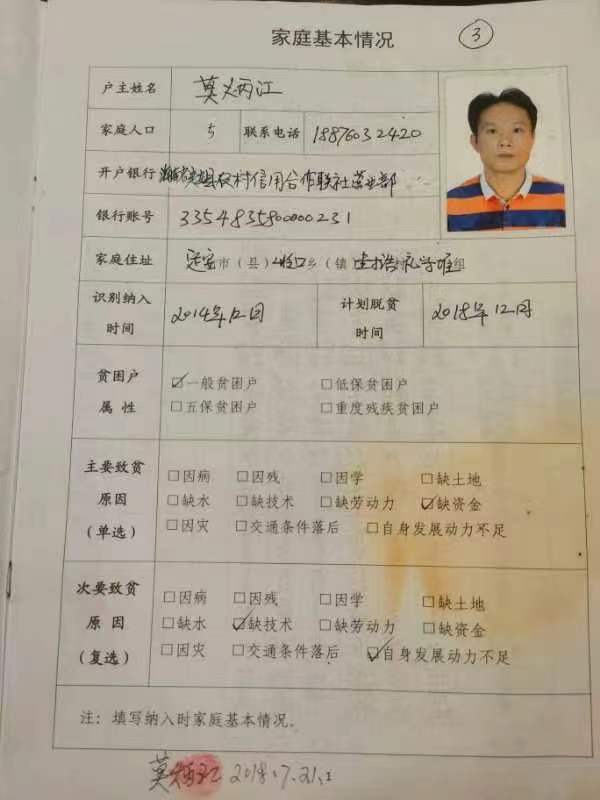 家庭基本情况 ③
户主姓名 莫炳江
家庭人口 5 联系电话 18876032420
开户银行 农村信用合作联社营业部
银行账号 3354835800000231
家庭住址 定安市（县）岭口乡（镇 组
识别纳入时间 2014年12月 计划脱贫时间 2018年12月
贫困户属性 ☑一般贫困户 □低保贫困户
□五保贫困户 □重度残疾贫困户
主要致贫原因（单选） □因病 □因残 □因学 □缺土地
□缺水 □缺技术 □缺劳动力 ☑缺资金
□因灾 □交通条件落后 □自身发展动力不足
次要致贫原因（复选） □因病 □因残 □因学 □缺土地
□缺水 ☑缺技术 □缺劳动力 □缺资金
□因灾 □交通条件落后 ☑自身发展动力不足
注：填写纳入时家庭基本情况.
莫炳江 2018.7.21